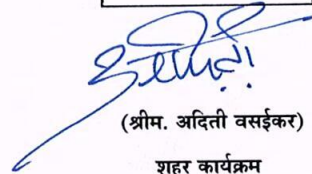 (श्रीम. अदिती वसईकर)
शहर कार्यक्रम